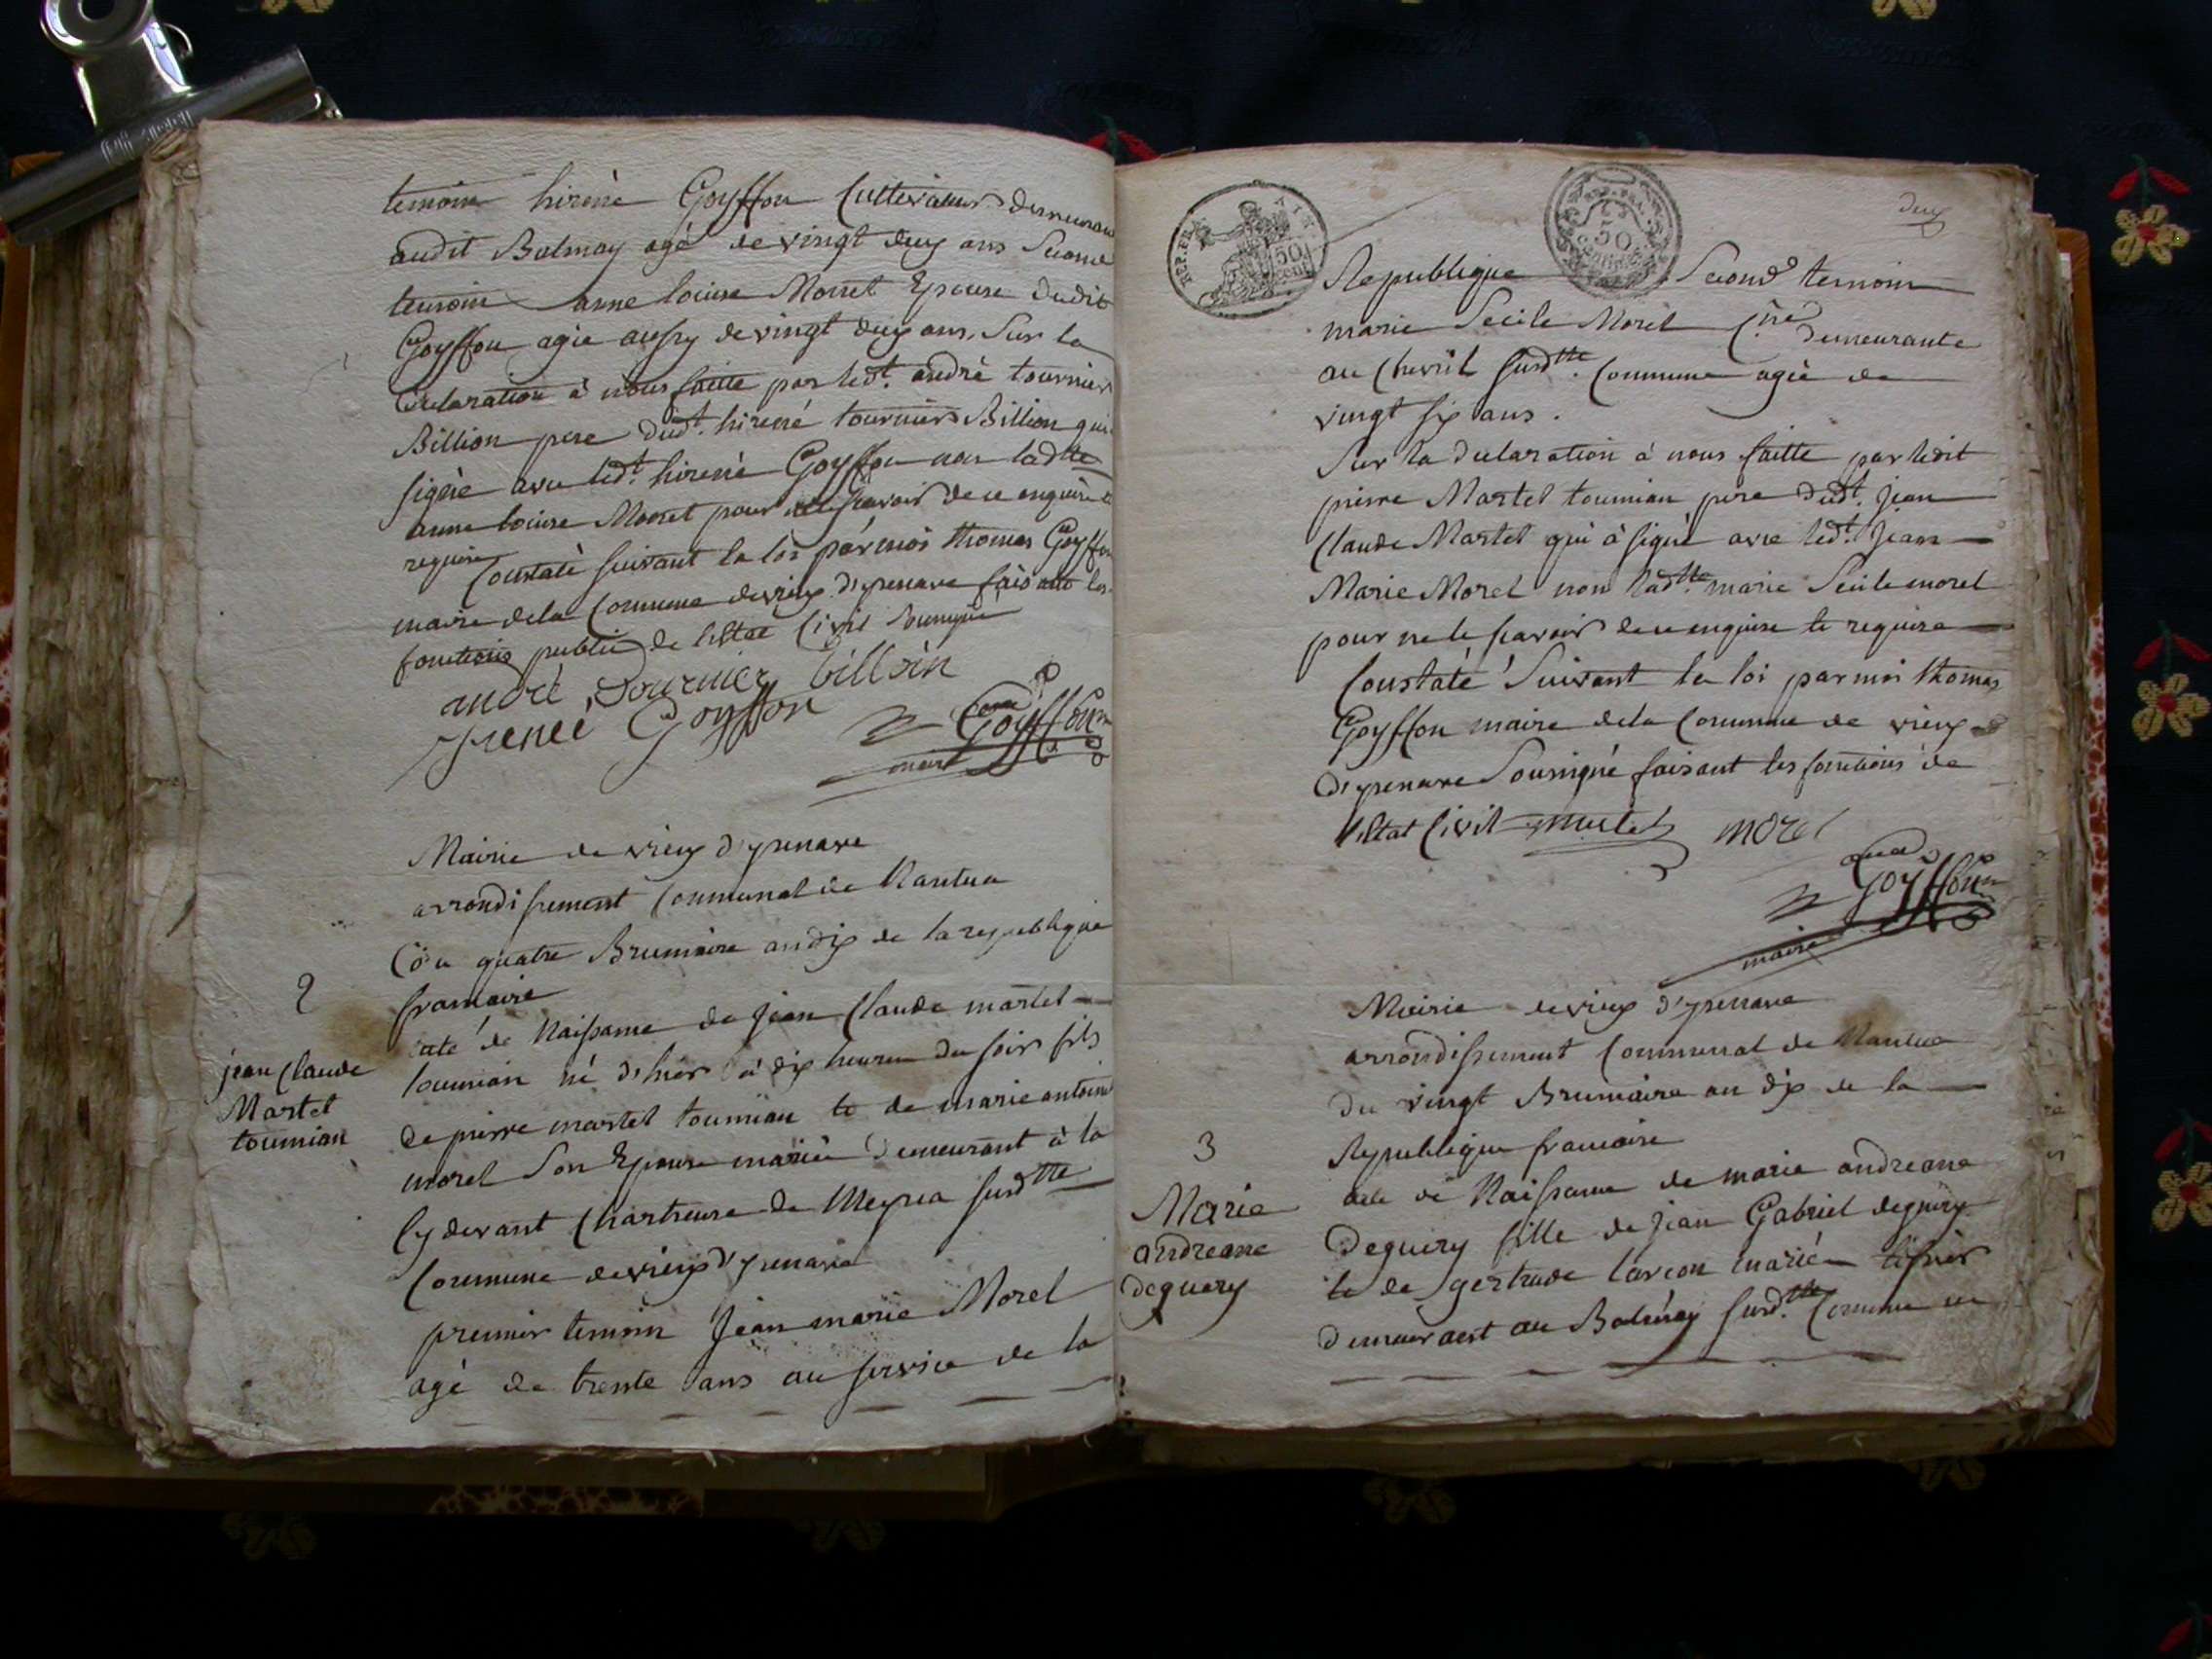 temoin hirènè Goyffon Cultivateur demeurant
audit Balmay agé de vingt deux ans Second
temoin anne louise Morret Epouse dudit
Goyffon agée aussy de vingt deux ans, Sur la
declaration à nous faitte par ledt. andrè tournier
Billion pere dudt. hirené tournier Billion qui
signè avec ledt. hirenè Goyffon non ladtte
anne louise Morret pour ne sçavoir de ce enquise et
requise
Constatè suivant la loi par moi thomas Goyffon
maire de la Commune de vieux d'yzenave faisant les
fonctions public de l'Etat Civil Soussigné
andré Tournier billion
Irenée Goyffon
Goyffon
maire
Mairie de vieux d'yzenave
arrondissement Communal de Nantua
Du quatre Brumaire an dix de la republique
francaise
2
acte de Naissance de jean Claude martel
jean Claude
Martel
toumian
toumian né d'hier à dix heures du soir fils
de pierre martel toumian et de marie antoine
morel Son Epouse mariée Demeurant à la
Cy devant Chartreuse de Meyria susdtte
Commune de vieux d'yzenave
premier temoin Jean marie Morel
agé de trente ans au service de la
REP. FRA.
50
cent
50
deux
Republique Second temoin
marie Secile Morel demeurante
au Chevril susdtte. Commune agée de
vingt six ans.
Sur la declaration à nous faitte par ledit
pierre Martel toumian pere dudt. jean
Claude Martel qui à signé avec ledt. Jean
Marie Morel non ladtte. marie Secile morel
pour ne le scavoir de ce enquise et requise
Constaté Suivant la loi par moi thomas
Goyffon maire de la Commune de vieux
d'yzenave Soussigné faisant les fonctions de
l'Etat Civil martel morel
Goyffon
maire
Mairie de vieux d'yzenave
arrondissement Communal de Nantua
du vingt Brumaire an dix de la
Republique francaise
3
Marie
andreane
deguery
acte de Naissance de marie andreane
Deguery fille de jean Gabriel deguery
et de gertrude larcon mariés
demeurant au Balmay susdtte. Commune